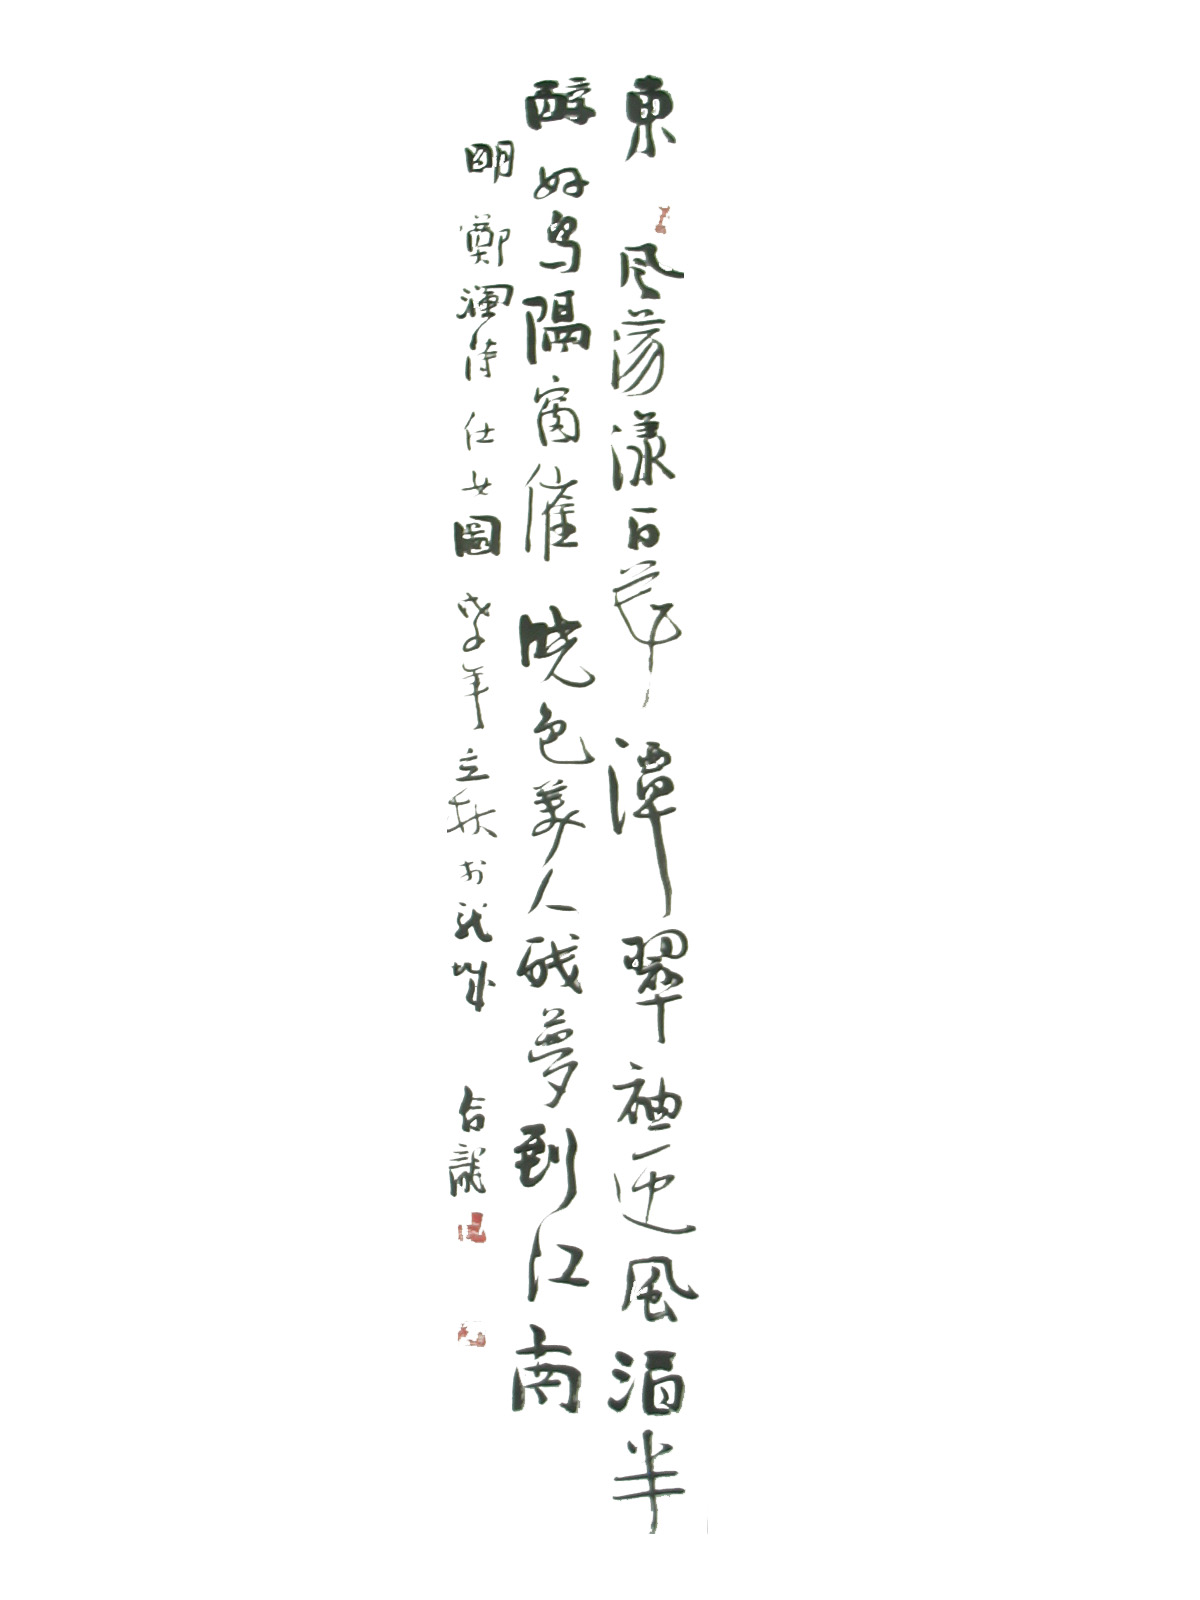 東風蕩漾百花潭翠袖迎風酒半
醉好鸟隔窗催曉色美人殘夢到江南
明鄭瀾诗仕女圖戊子年立秋於龙城合龍